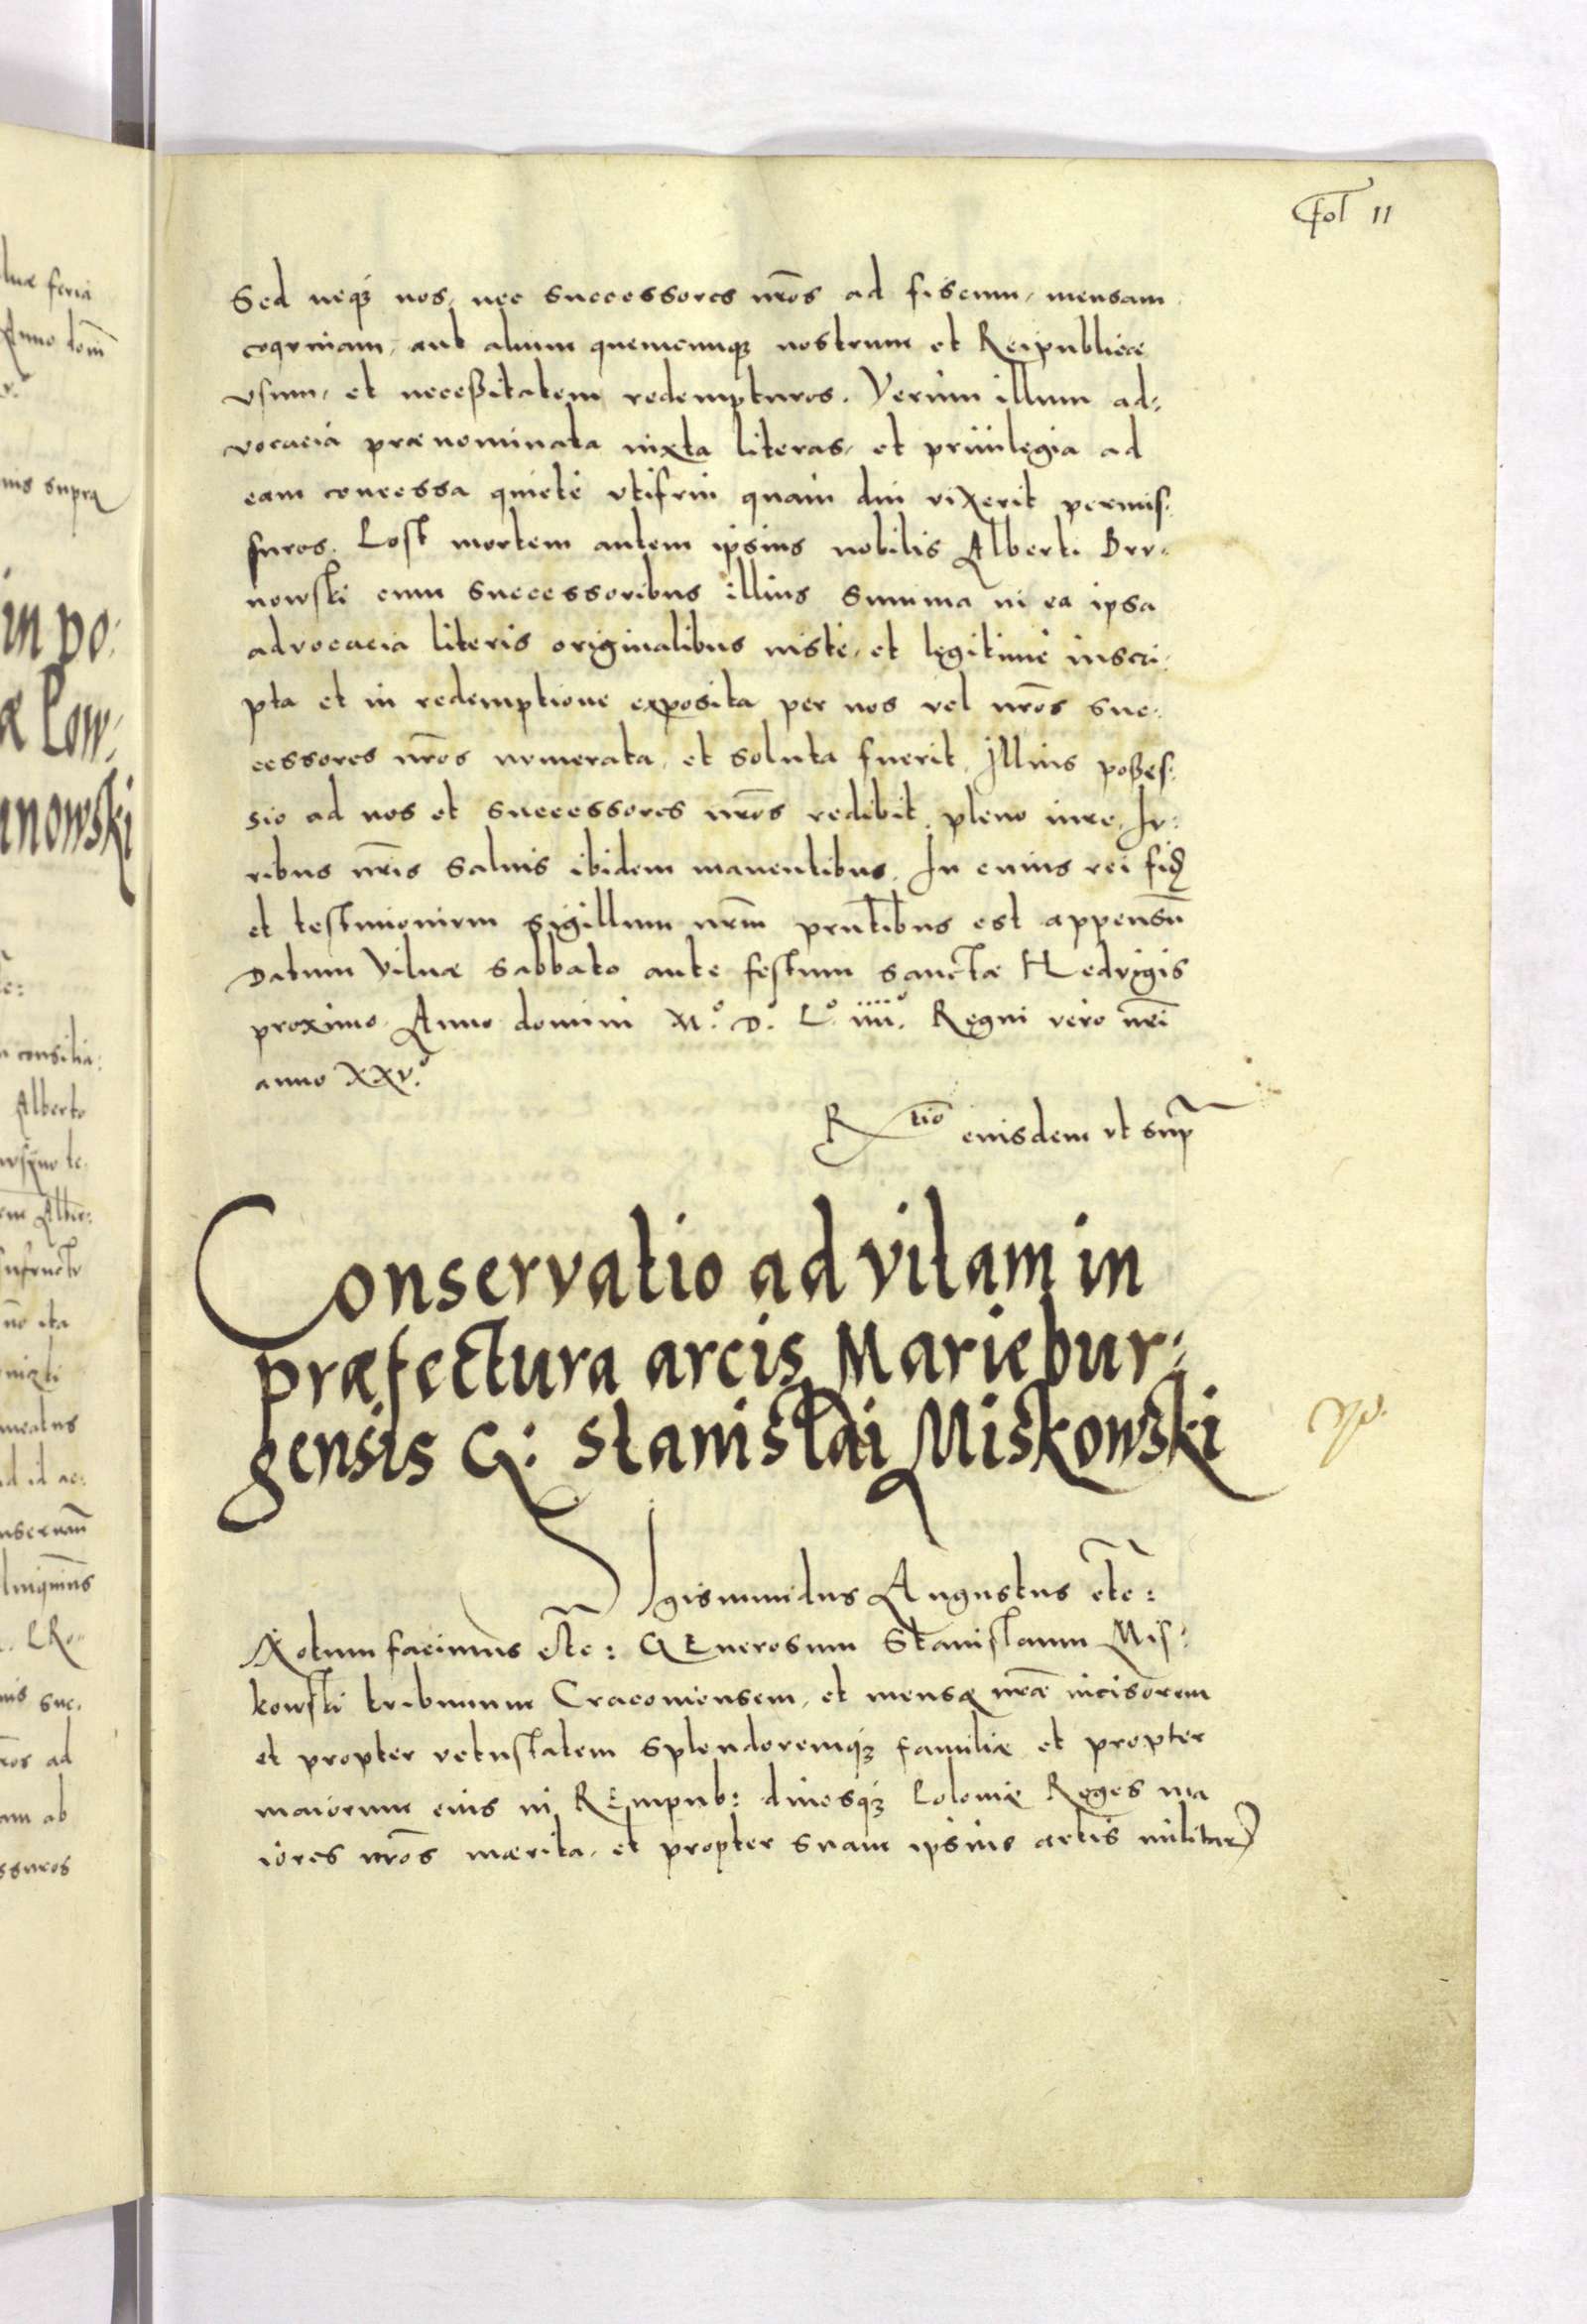 Fol 11
Sed neqʒ nos, nec successores nr̄os ad fiscum, mensam
coqvinam, aut alium quemcunqʒ nostrum et Reipublicæ
vsum, et neceßitatem redempturos. Verùm illum ad:
vocacia prænominata iuxta literas, et priuilegia ad
eam concessa quietè vtifrui quam diu vixerit permis:
suros. Post mortem autem ipsius nobilis Alberti Brv:
nowski cum successoribus illius summa in ea ipsa
advocacia literis originalibus iustè, et legitimè inscri:
pta et in redemptione exposita per nos vel nr̄os suc:
cessores nr̄os nvmerata, et soluta fuerit, Illius poßes:
sio ad nos et successores nr̄os redibit, pleno iure, Iv:
ribus nr̄is saluis ibidem manentibus. In cuius rei fidē
et testimonivm sigillum nr̄m prn̄tibus est appensū
Datum Vilnæ sabbato ante festum sanctæ Hedvigis
proximo. Anno domini M.° D.° L.° iiii.° Regni vero nr̄i
anno XXV.°
R tio eiusdem vt sup
Conservatio ad vitam in
præfectura arcis Mariębur:
gensis G: Stanislai Miskowski
Sigismundus Augustus etc:
Notum facimus etc: GEnerosum Stanislaum Mis:
kowski tribunum Cracouiensem, et mensę nr̄æ incisorem
et propter vetustatem splendoremqʒ familiæ et propter
maiorum eius in REmpub: diuosqʒ Poloniæ Reges ma
iores nr̄os mærita, et propter suam ipsius artis militar